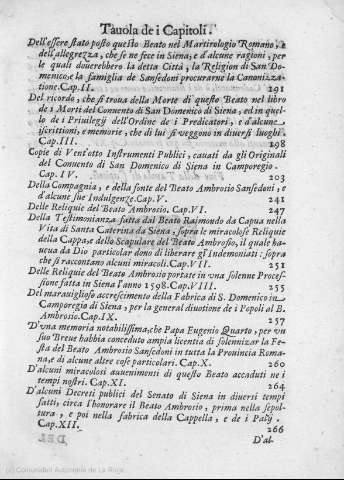 Tauola de i Capitoli.
Dell'essere stato posto questo Beato nel Martirologio Romano, e
dell'allegrezza, che se ne fece in Siena, e d'alcune ragioni, per
le quali douerebbero la detta Città, la Religion di San Do-
menico, e la famiglia de Sansedoni procurarne la Canoniza-
tione. Cap. II. 191
Del ricordo, che si troua della Morte di questo Beato nel libro
de i Morti del Conuento di San Domenico di Siena, ed in quel-
lo de i Priuilegij dell'Ordine de i Predicatori, e d'alcune
iscrittioni, e memorie, che di lui si veggono in diuersi luoghi
Cap. III. 198
Copie di Vent'otto Instrumenti Publici, cauati da gli Originali
del Conuento di San Domenico di Siena in Camporegio.
Cap. IV. 203
Della Compagnia, e della fonte del Beato Ambrosio Sansedoni, e
d'alcune sue Indulgenze. Cap. V. 241
Delle Reliquie del Beato Ambrosio. Cap. VI. 247
Della Testimonianza fatta dal Beato Raimondo da Capua nella
Vita di Santa Caterina da Siena, sopra le miracolose Reliquie
della Cappa, e dello Scapulare del Beato Ambrosio, il quale ha-
ueua da Dio particolar dono di liberare gl'Indemoniati: sopra
che si raccontano alcuni miracoli. Cap. VII. 251
Delle Reliquie del Beato Ambrosio portate in vna solenne Proces-
sione fatta in Siena l'anno 1598. Cap. VIII. 255
Del marauiglioso accrescimento della Fabrica di S. Domenico in
Camporegio di Siena, per la general diuotione de i Popoli al B.
Ambrosio. Cap. IX. 257
D'vna memoria notabilissima, che Papa Eugenio Quarto, per vn
suo Breue habbia conceduto ampla licentia di solennizar la Fe-
sta del Beato Ambrosio Sansedoni in tutta la Prouincia Roma-
na, e di alcune altre cose particolari. Cap. X. 260
D'alcuni miracolosi auuenimenti di questo Beato accaduti ne i
tempi nostri. Cap. XI. 264
D'alcuni Decreti publici del Senato di Siena in diuersi tempi
fatti, circa l'honorare il Beato Ambrosio, prima nella sepol-
tura, e poi nella fabrica della Cappella, e de i Palij.
Cap. XII. 266
D'al-
(c) Comunidad Autónoma de La Rioja